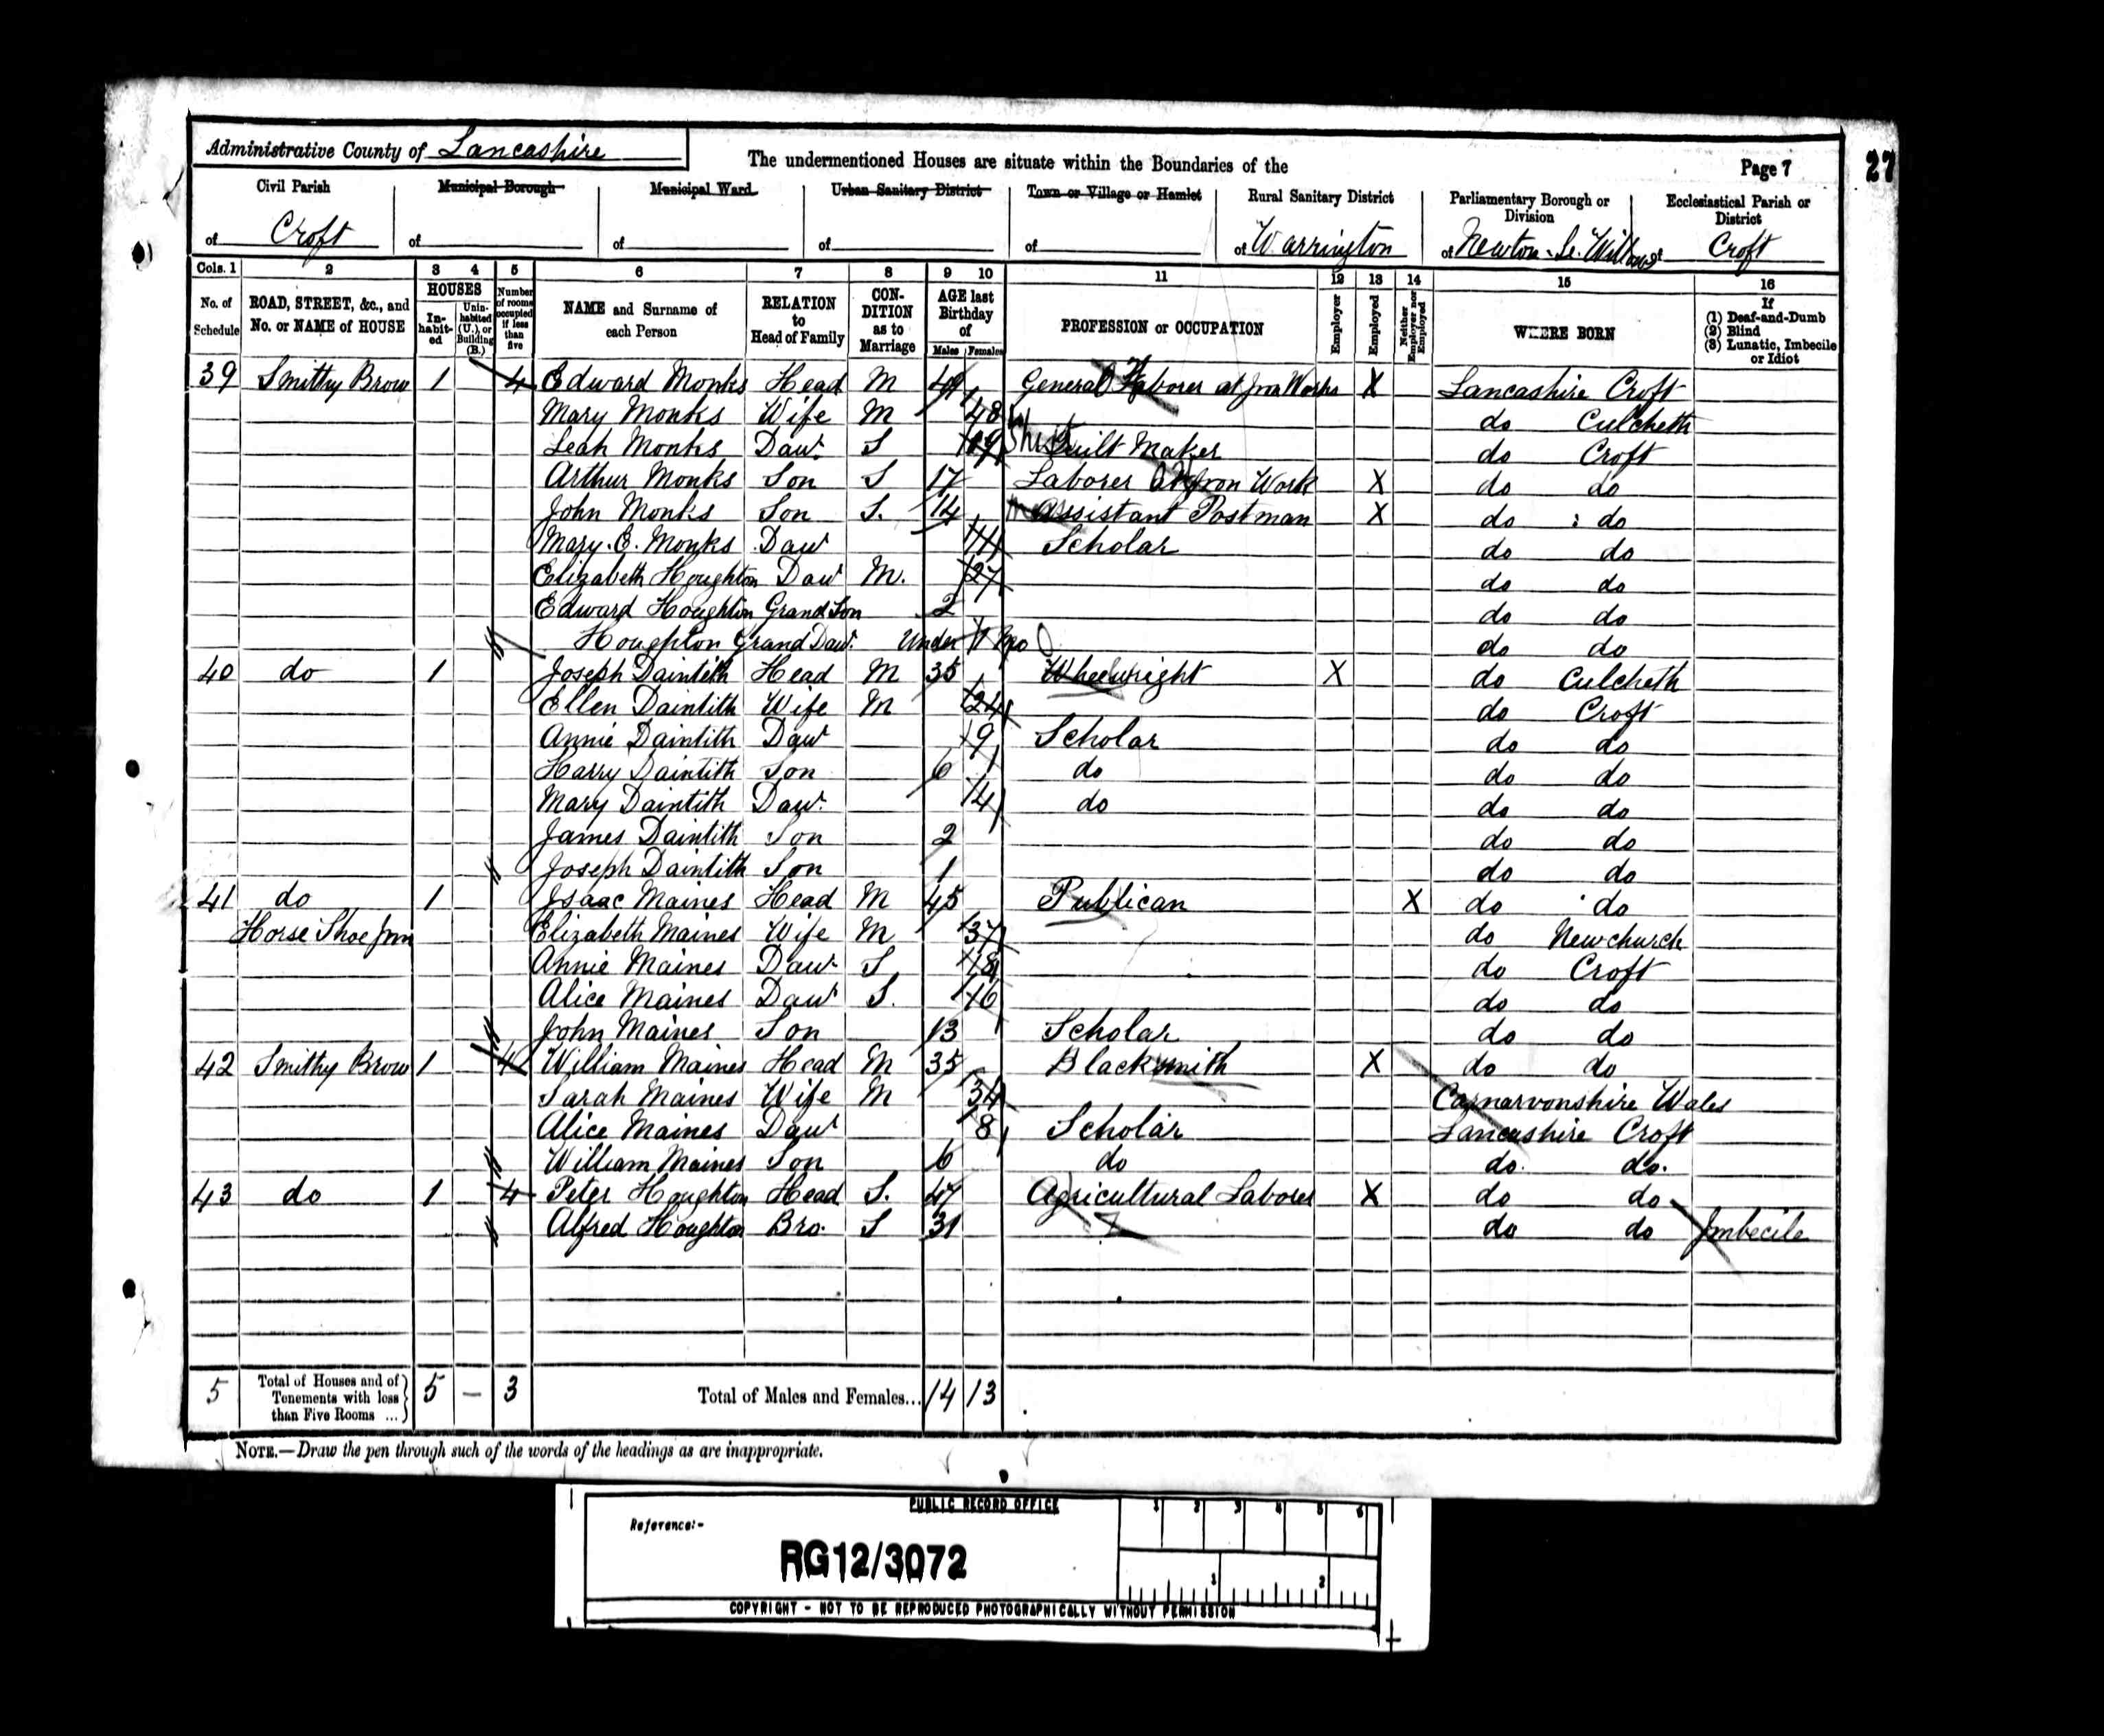 Administrative County of Lancashire
The undermentioned Houses are situate within the Boundaries of the
Page 7
27
Civil Parish Municipal Borough Municipal Ward Urban Sanitary District Town or Village or Hamlet Rural Sanitary District Parliamentary Borough or Division Ecclesiastical Parish or District
of Croft of of of of of Warrington of Newton-Le-Willows of Croft
Cols. 1 2 3 4 5 6 7 8 9 10 11 12 13 14 15 16
No. of Schedule ROAD, STREET, &c., and No. or NAME of HOUSE HOUSES In-habit-ed Unin-habited (U.), or Building (B.) Number of rooms occupied if less than five NAME and Surname of each Person RELATION to Head of Family CON-DITION as to Marriage AGE last Birthday of Males Females PROFESSION or OCCUPATION Employer Employed Neither Employer nor Employed WHERE BORN If (1) Deaf-and-Dumb (2) Blind (3) Lunatic, Imbecile or Idiot
39 Smithy Brow 1 4 Edward Monks Head M General Laborer at Iron Works X Lancashire Croft
Mary Monks Wife M 48 do Culcheth
Leah Monks Daur S 19 Quilt Maker do Croft
Arthur Monks Son S 17 Laborer Iron Work X do do
John Monks Son S. 14 Assistant Postman X do do
Mary. E. Monks Daur 11 Scholar do do
Elizabeth Houghton Daur M. 27 do do
Edward Houghton Grand Son 2 do do
Houghton Grand Daur. Under 1 Mo do do
40 do 1 Joseph Daintith Head M 35 Wheelwright X do Culcheth
Ellen Daintith Wife M do Croft
Annie Daintith Daur 9 Scholar do do
Harry Daintith Son 6 do do do
Mary Daintith Daur. 4 do do do
James Daintith Son 2 do do
Joseph Daintith Son 1 do do
41 do 1 Isaac Maines Head M 45 Publican X do do
Horse Shoe Inn Elizabeth Maines Wife M 37 do Newchurch
Annie Maines Daur S 18 do Croft
Alice Maines Daur S. 16 do do
John Maines Son 13 Scholar do do
42 Smithy Brow 1 4 William Maines Head M 35 Blacksmith X do do
Sarah Maines Wife M 34 Carnarvonshire Wales
Alice Maines Daur 8 Scholar Lancashire Croft
William Maines Son 6 do do. do.
43 do 1 4 Peter Houghton Head S. 47 Agricultural Laborer X do do
Alfred Houghton Bro. S 31 do do Imbecile
5 Total of Houses and of Tenements with less than Five Rooms ... 5 — 3 Total of Males and Females... 14 13
NOTE.—Draw the pen through such of the words of the headings as are inappropriate.
PUBLIC RECORD OFFICE
1 2 3 4 5 6
Reference:-
RG12/3072
1 2
COPYRIGHT - NOT TO BE REPRODUCED PHOTOGRAPHICALLY WITHOUT PERMISSION